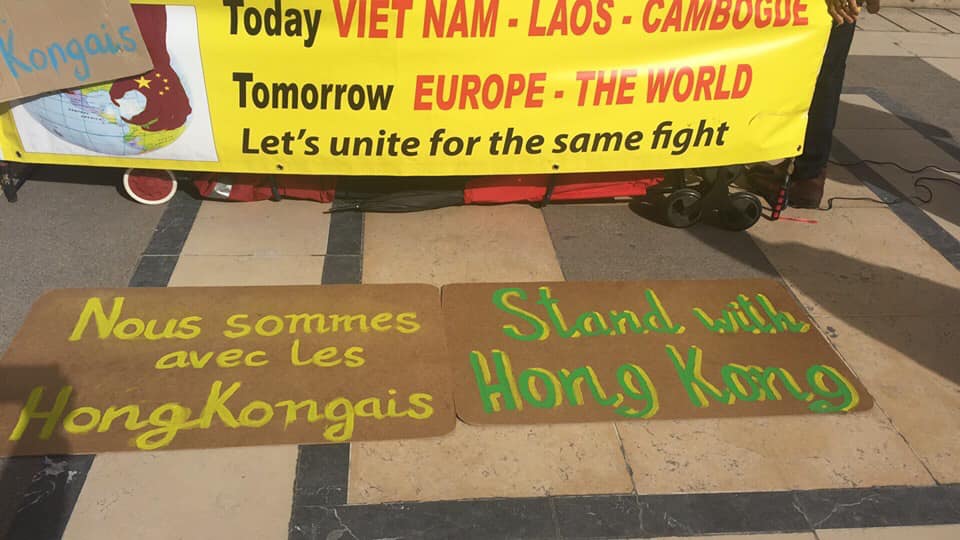 Kongais
Today VIET NAM - LAOS - CAMBOGDE
Tomorrow EUROPE - THE WORLD
Let's unite for the same fight
Nous sommes
avec les
HongKongais
Stand with
Hong Kong